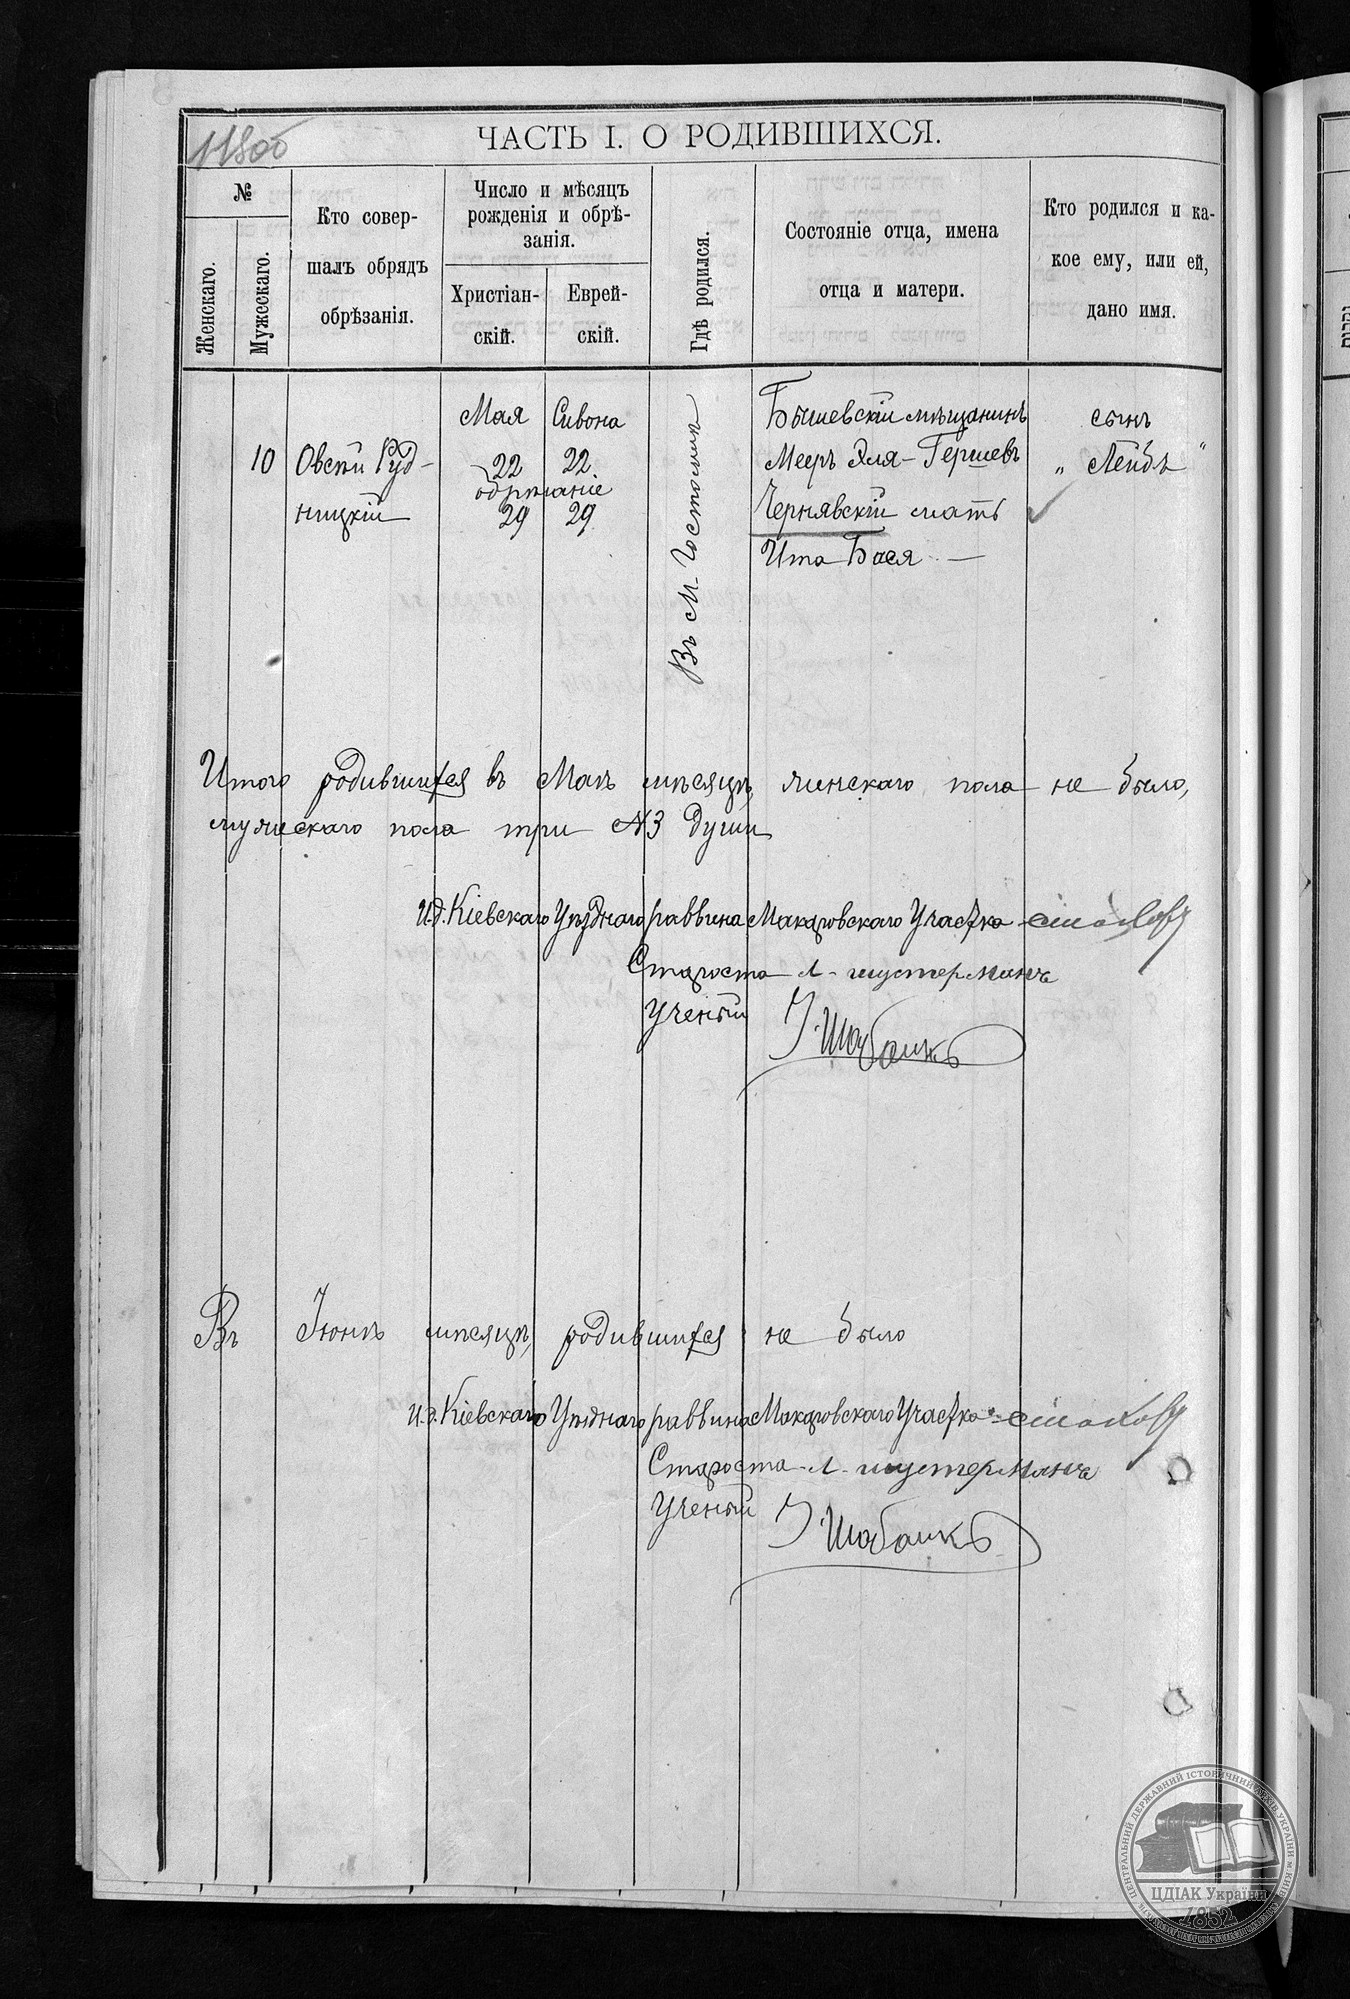 118об
ЧАСТЬ I. О РОДИВШИХСЯ.
№
Женскаго.
Мужескаго.
Кто совер-
шалъ обрядъ
обрѣзанія.
Число и мѣсяцъ
рожденія и обрѣ-
занія.
Христіан-
скій.
Еврей-
скій.
Гдѣ родился.
Состояніе отца, имена
отца и матери.
Кто родился и ка-
кое ему, или ей,
дано имя.
10
Овсѣй Руд-
ницкій
Мая Сивона
22 22
обрѣзаніе
29 29
Въ М. Гостомлѣ
Бышевскій мѣщанинъ
Мееръ Эля-Гершевъ
Чернявскій мать
Ита Бася —
сынъ
„ Лейбъ "
Итого родившихся въ Маѣ мѣсяцѣ женскаго пола не было,
мужескаго пола три №3 души
И.д. Кіевскаго Уѣзднаго раввина Макаровскаго Участка
Староста Л. Шустерманъ
Ученый І. Шабашкъ
Въ Іюнѣ мѣсяцѣ родившихся не было
И.д. Кіевскаго Уѣзднаго раввина Макаровскаго Участка
Староста Л. Шустерманъ
Ученый І. Шабашкъ
ЦЕНТРАЛЬНИЙ ДЕРЖАВНИЙ ІСТОРИЧНИЙ АРХІВ УКРАЇНИ м. КИЇВ
ЦДІАК України
1852